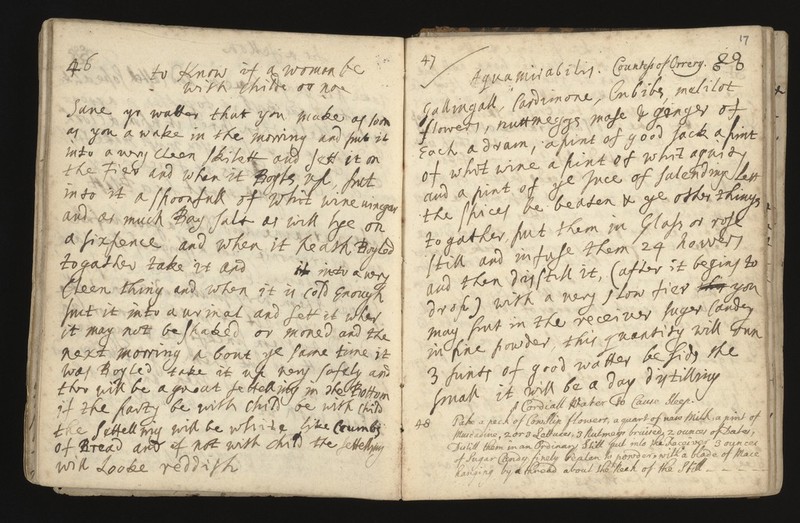 46
to Know if a woman be
with Childe or noe
Save yr watter that you make as soon
as you a wake in the morning and put it
into a very Cleen Skilett and sett it on
the Fier and when it Boyles up, put
into it a spoonfull of whit wine vineger
and as much Bay salt as will lye on
a sixpence and when it heath Boyled
togather take it and it into a very
Cleen thing and when it is Cold Enough
put it into a urinal and sett it wher
it may not be shaked or moned and the
next morning a bout ye same time it
was Boyled take it up very softly and
ther will be a great settelling in the Bottom
if the party be with Child be with Child
the settelling will be whitte like Crumbs
of Bread and if not with Child the settelling
will Looke reddish
17
47
Aquamirabilis. Countess of Orrery.
Gallingall, Cardimone, Cubibs, melilot
flowers, nuttmeggs mase & ginger of
Each a dram, a pint of good sack a pint
of whit wine a pint of whit aquid
and a pint of ye Juce of salendine Lett
the spices be beaten & ye other things
togather put them in Glass or rose
still and infuse them 24 howers
and then disstill it, (after it begins to
drop) with a very slow fier you
may put in the receiver suger Candey
in fine powder, this quantity will run
3 pints of good watter besids the
small it will be a day distilling
A Cordiall Water To Cause Sleep.
48
Take a peck of Conslip flowers, a quart of new Milk, a pint of
Muscadine, 2 or 3 Lettuces, 3 Nutmegs bruised, 2 ounces of Dates,
Distill them in an Ordinary Still put into the Receiver 3 ounces
of Sugar Candy finely beaten to powder, with a blade of Mace
hanging by a thread about the Neck of the Still